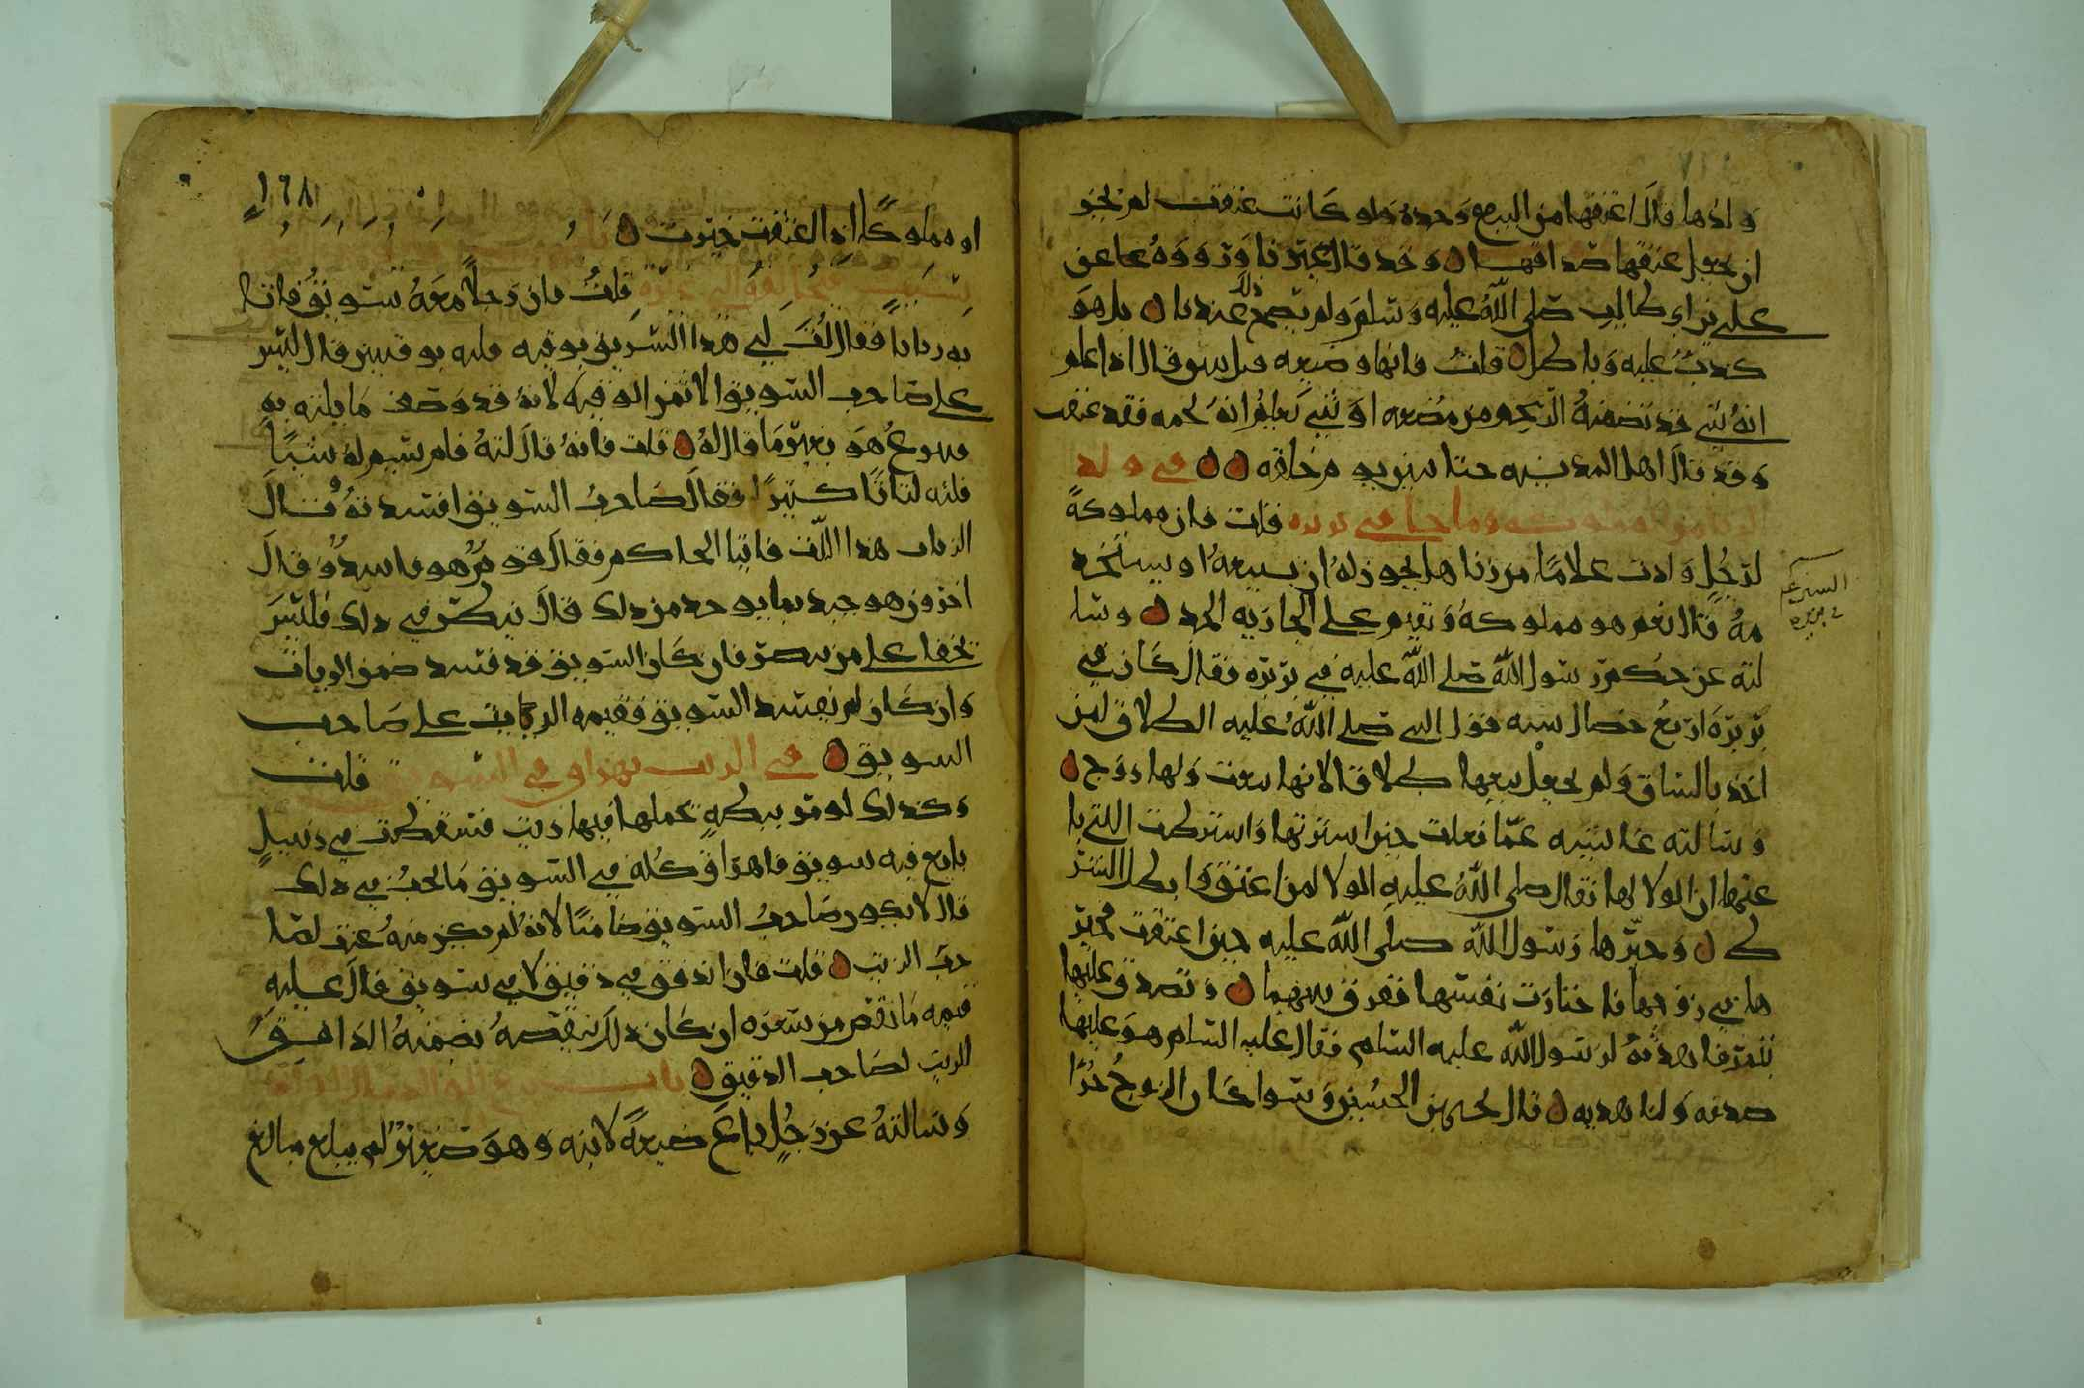 ولدها قال اعتقها من البيع وحده ولو كانت عتقت لم يجز
ان يجعل عتقها صداقها وقد قال غيرنا ورووه عا عن
علي بن ابي طالب صلى الله عليه وسلم ولم يصح ذلك عندنا بل هو
كذب عليه وباطل قلت فانها وضعته قال اذا علم
انه شي قد تضمنه الرحم من مضغه او شي يعلم انه لحمه فقد عتقت
وقد قال اهل المدينه حتا من خلقه في ولد
وما جا في بريره قلت فان مملوكةً
لرجلٍ ولدت غلامًا من زنا هل يجوز له ان يبيعه او يستخد
مه قال نعم هو مملوكه وتقيم على الجاريه الحد وسا
لته عن حكم رسول الله صلى الله عليه في بريره فقال كان في
بريرة اربع خصال قول النبي صلى الله عليه الطلاق لمن
اخذ بالساق ولم يجعل بيعها طلاقا لانها بيعت ولها زوج
وسالته عائشه عما فعلت حين اشترتها واشترطت البا
عتها ان الولا لها فقال صلى الله عليه الولا لمن اعتق وابطل الشر
ط وخيرها رسول الله صلى الله عليه حين اعتقت
ها في زوجها فاختارت نفسها ففرق بينهما وتصدق عليها
بتمر فاهدته لرسول الله عليه السلام فقال عليه السلام هو عليها
صدقه ولنا هديه قال يحيى بن الحسين وسوا كان الزوج حرًا
السرعم
في بريره
١٦٨
او مملوكًا اذا اعتقت خيرت
قلت فان رجلاً معه سويق فاتا
به زياتاً فقال لت لي هذا السويق بوقيه فلته بوقيتين قال ليس
على صاحب السويق الا ثمن الوقيه لانه قد وصف ما يلته به
هو بغير ما قال له قلت فانه قال لته فلم يسم له شيئًا
فلته لتاتًا كثيرًا فقال صاحب السويق افسدته وقال
الزيات هذا اللت فاتيا الحاكم فقال قوم هو فاسد وقال
اخرون هو جيد بما يوجد من ذلك قال ينظر في ذلك فليس
يخفا على من يبصر فان كان السويق قد فسد ضمن الزيات
وان كان لم يفسد السويق فقيمه الزيت على صاحب
السويق في الزيت يهراق في السويق قلت
وكذلك لو مر ببطه يحملها فيها زيت فسقطت في زنبيلٍ
بايع فيه سويق فاهراق كله في السويق ما يجب في ذلك
قال لا يكون صاحب السويق ضامنًا لانه لم يكن منه عنف لصا
حب الزيت قلت فان اندفق في دقيق لا في سويق قال عليه
قيمه ما نقص من سعره ان كان ذلك ينقصه يضمنه
الزيت لصاحب الدقيق باب
وسالته عن رجلٍ باع ضيعةً لابنه وهو صغير لم يبلغ مبالغ